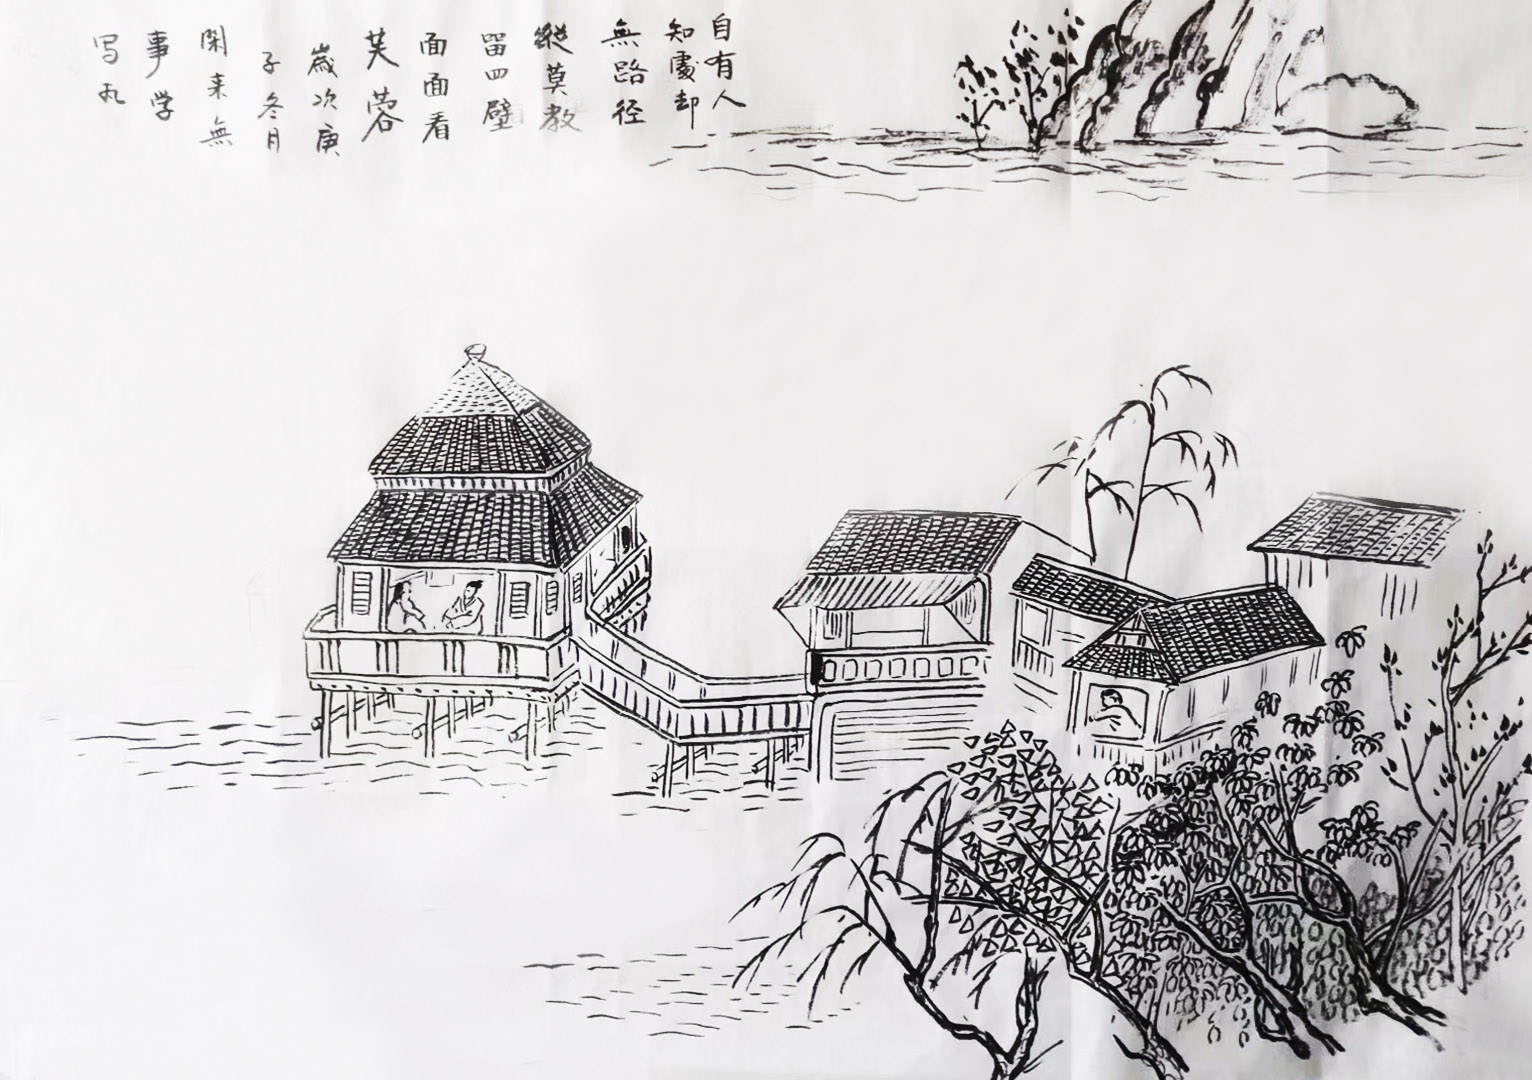 自有人
知處却
無路径
縱莫教
留四壁
面面看
芙蓉
歲次庚
子冬月
閑来無
事学
写